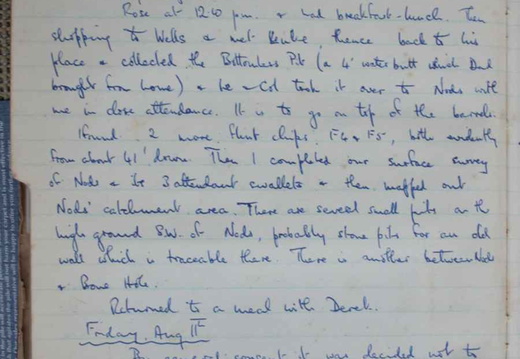 Rose at 12.40 p.m. & had breakfast-lunch. Then
shopping to Wells & met Kenlie, thence back to his
place & collected the Bottomless Pit (a 4' water butt which Dad
brought from home) & he & Col took it over to Nods with
me in close attendance. It is to go on top of the barrels.
I found 2 more flint chips, F4 & F5, both evidently
from about 41' down. Then I completed our surface survey
of Nods & its 3 attendant swallets & then mapped out
Nods' catchment area. There are several small pits on the
high ground S.W. of Nods, probably stone pits for an old
wall which is traceable there. There is another between Nods
& Bone Hole.
Returned to a meal with Derek.
Friday. Aug 11th
it was decided not to